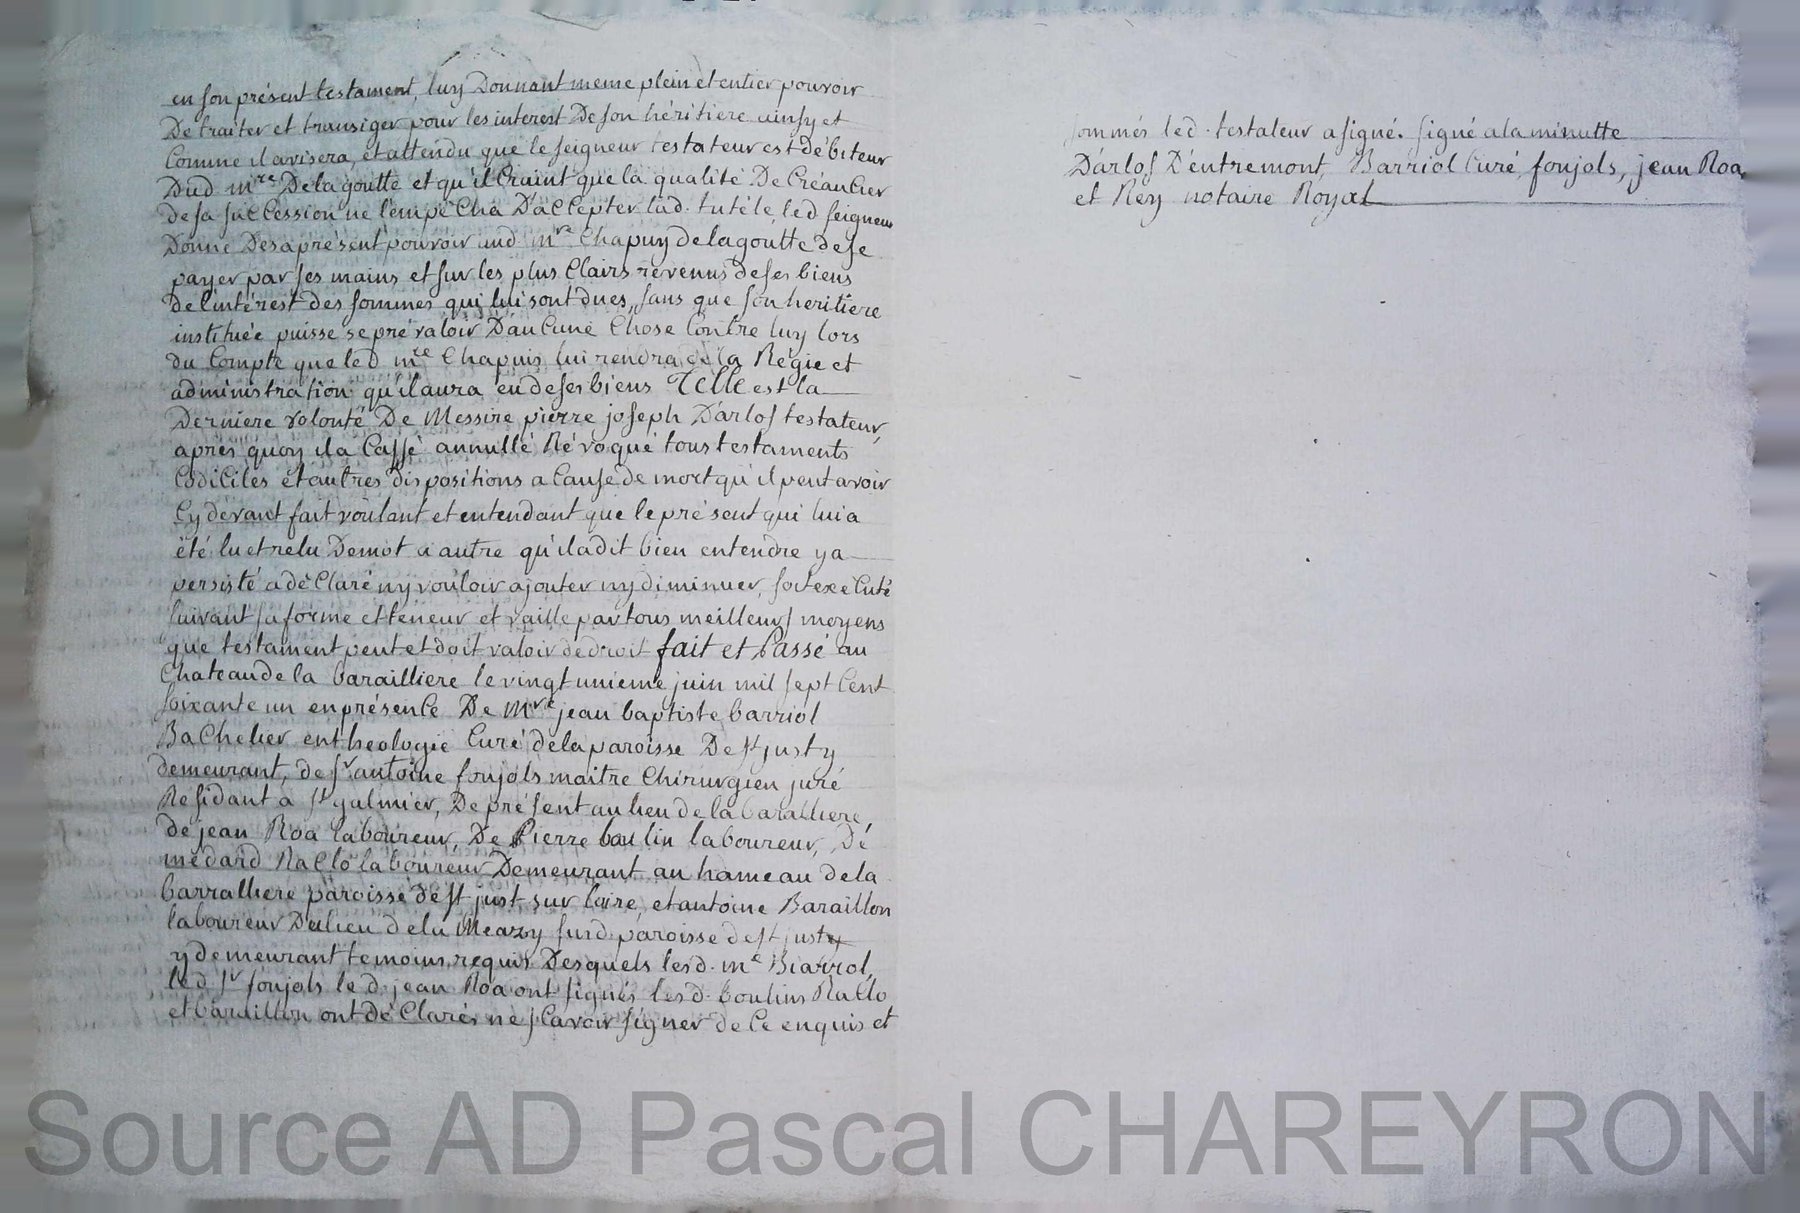 en son présent testament, luy Donnant meme plein et entier pouvoir
De traiter et transiger pour les interest De son héritiere ainsy et
Comme il avisera, et attendu que le seigneur testateur est débiteur
Dud mre De la goutte et qu'il Craint que la qualité De Créancier
de sa succession ne l'empêcha D'accepter lad. tutéle, led seigneur
Donne Des a présent pouvoir aud mre Chapuy de la goutte de se
payer par ses mains et sur les plus Clairs revenus de ses biens
de l'intérest des sommes qui lui sont dues, sans que son heritiere
instituée puisse se prévaloir D'aucune Chose Contre luy lors
du Compte que led mre Chapuis lui rendra de la Régie et
administration qu'il aura eu de ses biens Telle est la
Derniere volonté De Messire pierre joseph D'arlos testateur,
après quoy il a Cassé annullé Révoqué tous testaments
Codiciles et autres dispositions a Cause de mort qu'il peut avoir
Cy devant fait voulant et entendant que le présent qui lui a
été lu et relu Demot a autre qu'il a dit bien entendre y a
persisté a déClaré ny vouloir ajouter ny diminuer, soit exeCuté
suivant sa forme et teneur et vaille par tous meilleurs moyens
que testament peut et doit valoir de droit fait et Passé au
Chateau de la baralliere le vingt unieme juin mil sept Cent
soixante un en présence De Mre jean baptiste barriol
Bachelier en theologie Curé de la paroisse De st just y
demeurant, de sr antoine foujols maitre Chirurgien juré
Residant a st galmier, De présent au lieu de la baralliere,
de jean Roa laboureur, De Pierre boulin laboureur, De
médard Raclo laboureur Demeurant au hameau de la
barralliere paroisse de st just sur loire, et antoine Baraillon
laboureur Du lieu de la Meazy susd. paroisse de st just
y demeurant temoins requis Desquels lesd. me Biarrol,
led sr foujols led. jean Roa ont signés lesd. boulins Raclo
et baraillon ont déClarés ne sCavoir signer de Ce enquis et
sommés led. testateur a signé. signé a la minutte
D'arlos D'entremont, Barriol Curé, foujols, jean Roa,
et Rey notaire Royal
Source AD Pascal CHAREYRON